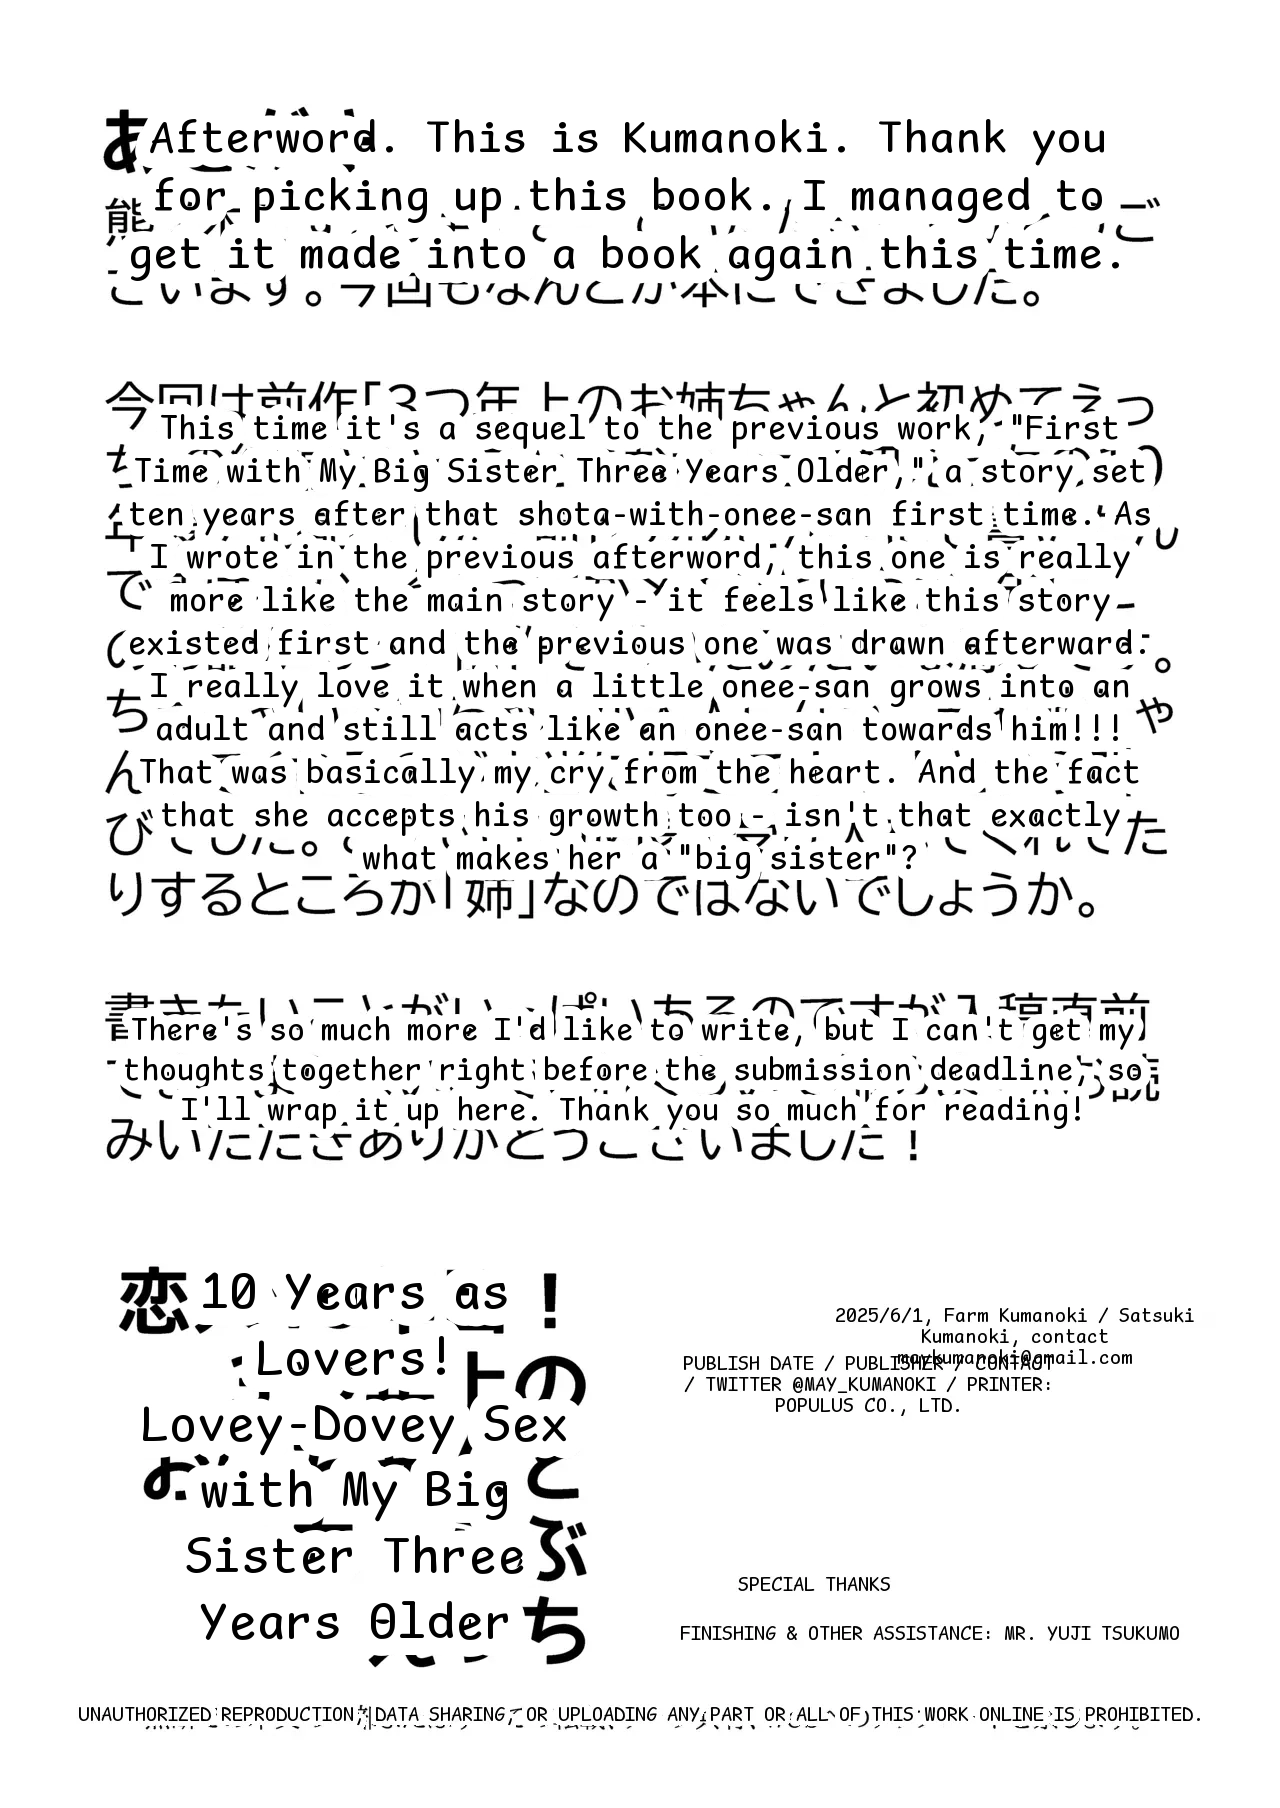 Afterword. This is Kumanoki. Thank you
for picking up this book. I managed to
get it made into a book again this time.
This time it's a sequel to the previous work, "First
Time with My Big Sister Three Years Older," a story set
ten years after that shota-with-onee-san first time. As
I wrote in the previous afterword, this one is really
more like the main story - it feels like this story
existed first and the previous one was drawn afterward.
I really love it when a little onee-san grows into an
adult and still acts like an onee-san towards him!!!
That was basically my cry from the heart. And the fact
that she accepts his growth too - isn't that exactly
what makes her a "big sister"?
りするところが「姉」なのではないでしょうか。
There's so much more I'd like to write, but I can't get my
thoughts together right before the submission deadline, so
I'll wrap it up here. Thank you so much for reading!
10 Years as
Lovers!
Lovey-Dovey Sex
with My Big
Sister Three
Years Older
2025/6/1, Farm Kumanoki / Satsuki
Kumanoki, contact
maykumanoki@gmail.com
PUBLISH DATE / PUBLISHER / CONTACT
/ TWITTER @MAY_KUMANOKI / PRINTER:
POPULUS CO., LTD.
SPECIAL THANKS
FINISHING & OTHER ASSISTANCE: MR. YUJI TSUKUMO
UNAUTHORIZED REPRODUCTION, DATA SHARING, OR UPLOADING ANY PART OR ALL OF THIS WORK ONLINE IS PROHIBITED.